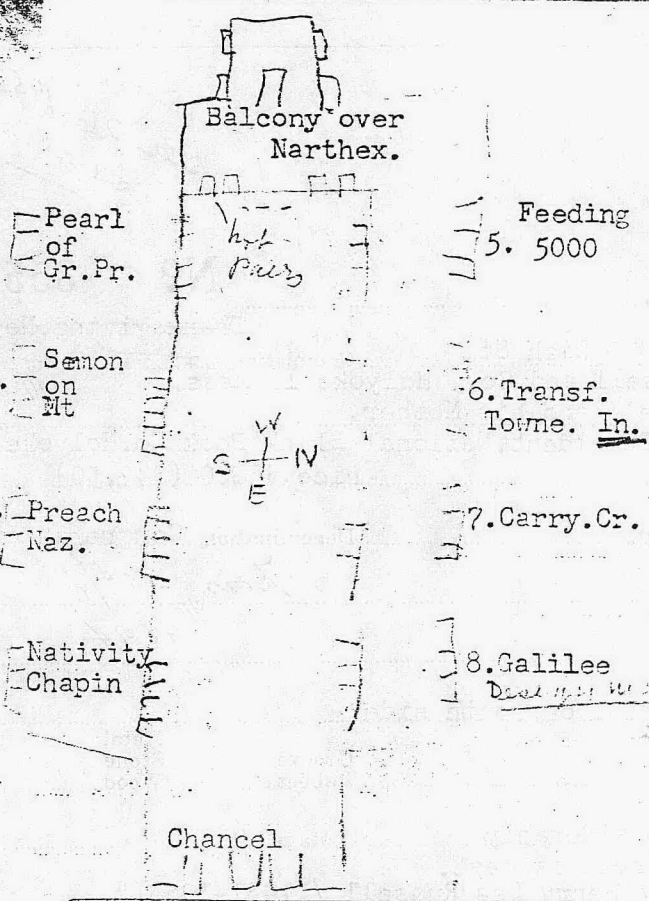 Balcony over
Narthex.
Pearl
of
Gr.Pr.
hot
Pairs
Feeding
5. 5000
Semon
on
Mt
6.Transf.
Towne. In.
W
S N
E
Preach
Naz.
7.Carry.Cr.
Nativity
Chapin
8.Galilee
Design
Chancel